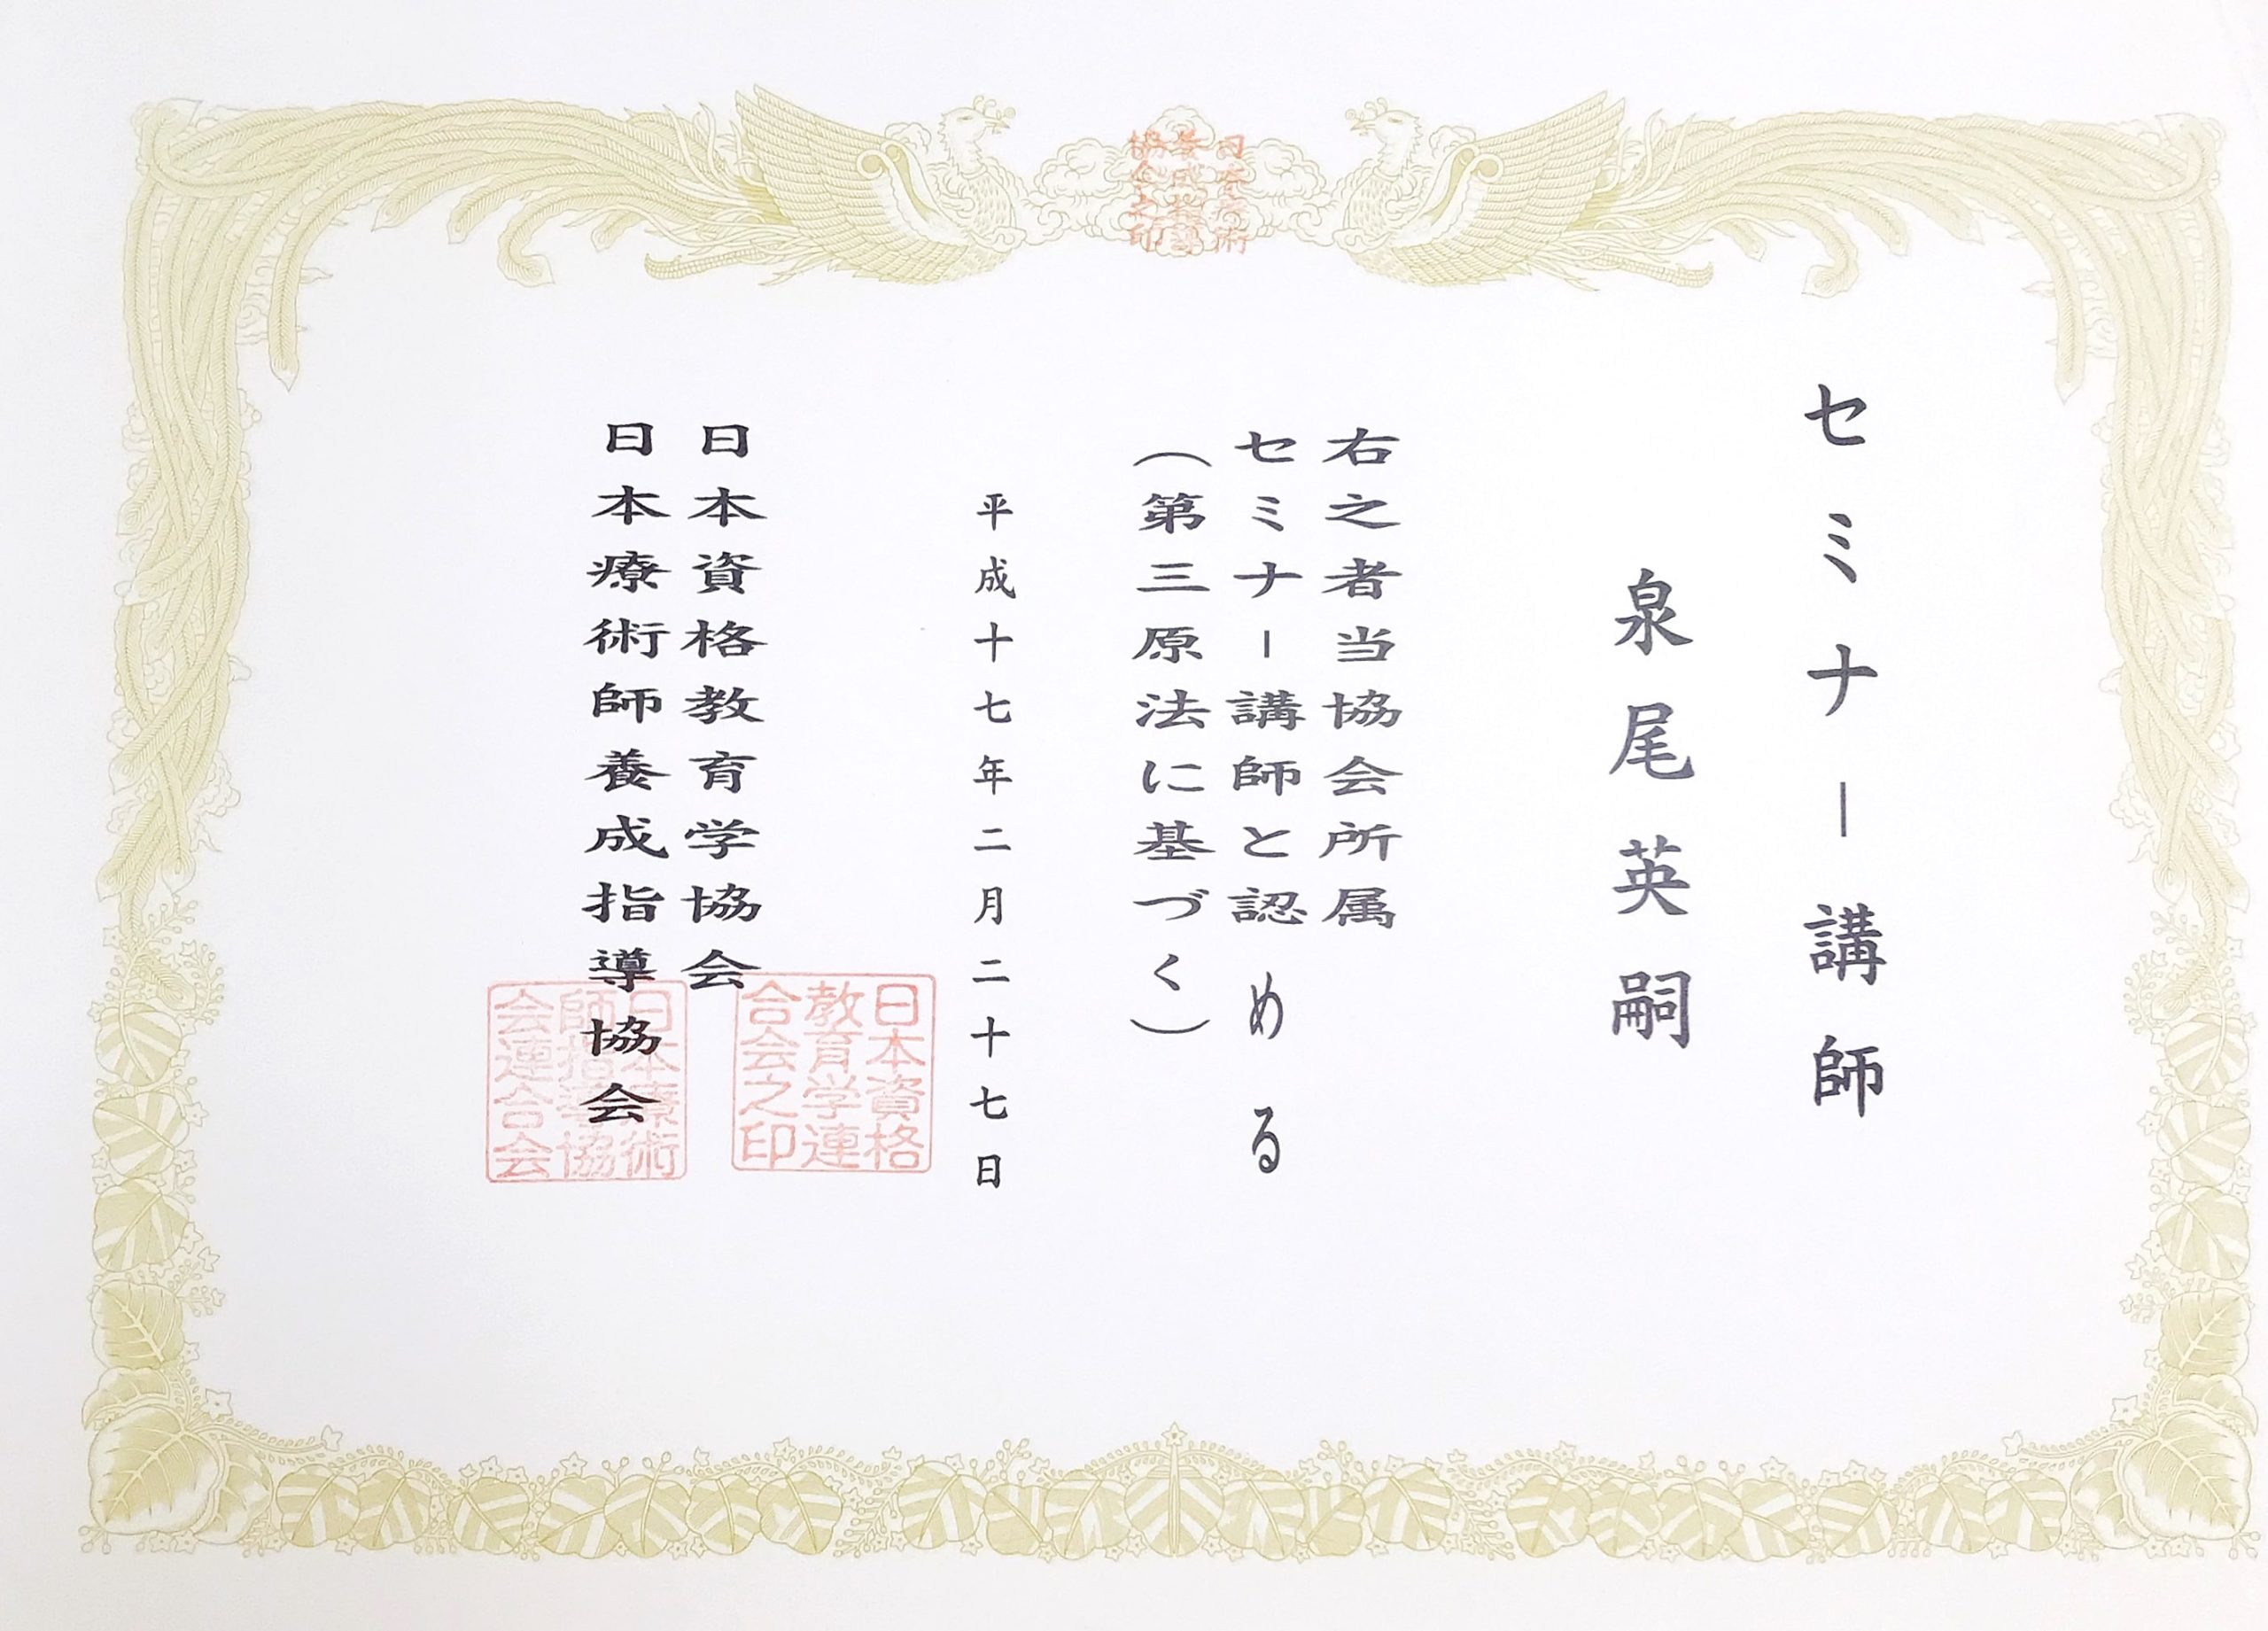 セミナー講師
泉尾英嗣
右之者当協会所属
セミナー講師と認める
（第三原法に基づく）
平成十七年二月二十七日
日本資格教育学協会
日本療術師養成指導協会
日本資格
教育学連
合会之印
日本療術
師指導協
会連合会
日本療術
養成指導
協会之印